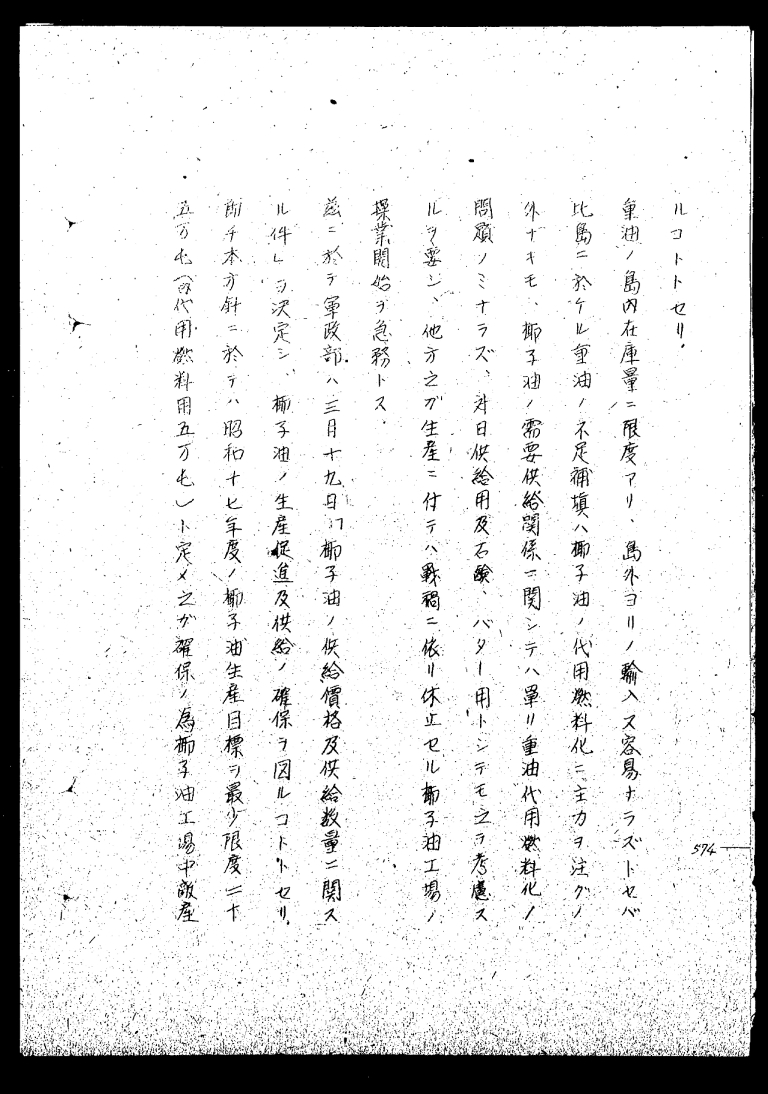 ルコトトセリ.
重油ノ島内在庫量ニ限度アリ、島外ヨリノ輸入又容易ナラズトセバ
比島ニ於ケル重油ノ不足補填ハ椰子油ノ代用燃料化ニ主力ヲ注グノ
外ナキモ、椰子油ノ需要供給関係ニ関シテハ單リ重油代用燃料化ノ
問題ノミナラズ、対日供給用及石鹸、バター用トシテモ之ヲ考慮ス
ルヲ要シ、他方之ガ生産ニ付テハ戰禍ニ依リ休止セル椰子油工場ノ
操業開始ヲ急務トス.
茲ニ於テ軍政部ハ三月十九日「椰子油ノ供給價格及供給数量ニ関ス
ル件」ヲ決定シ、椰子油ノ生産促進及供給ノ確保ヲ図ルコトトセリ.
即チ本方針ニ於テハ昭和十七年度ノ椰子油生産目標ヲ最少限度二十
五万屯(内代用燃料用五万屯)ト定メ之ガ確保ノ為椰子油工場中敵産
574